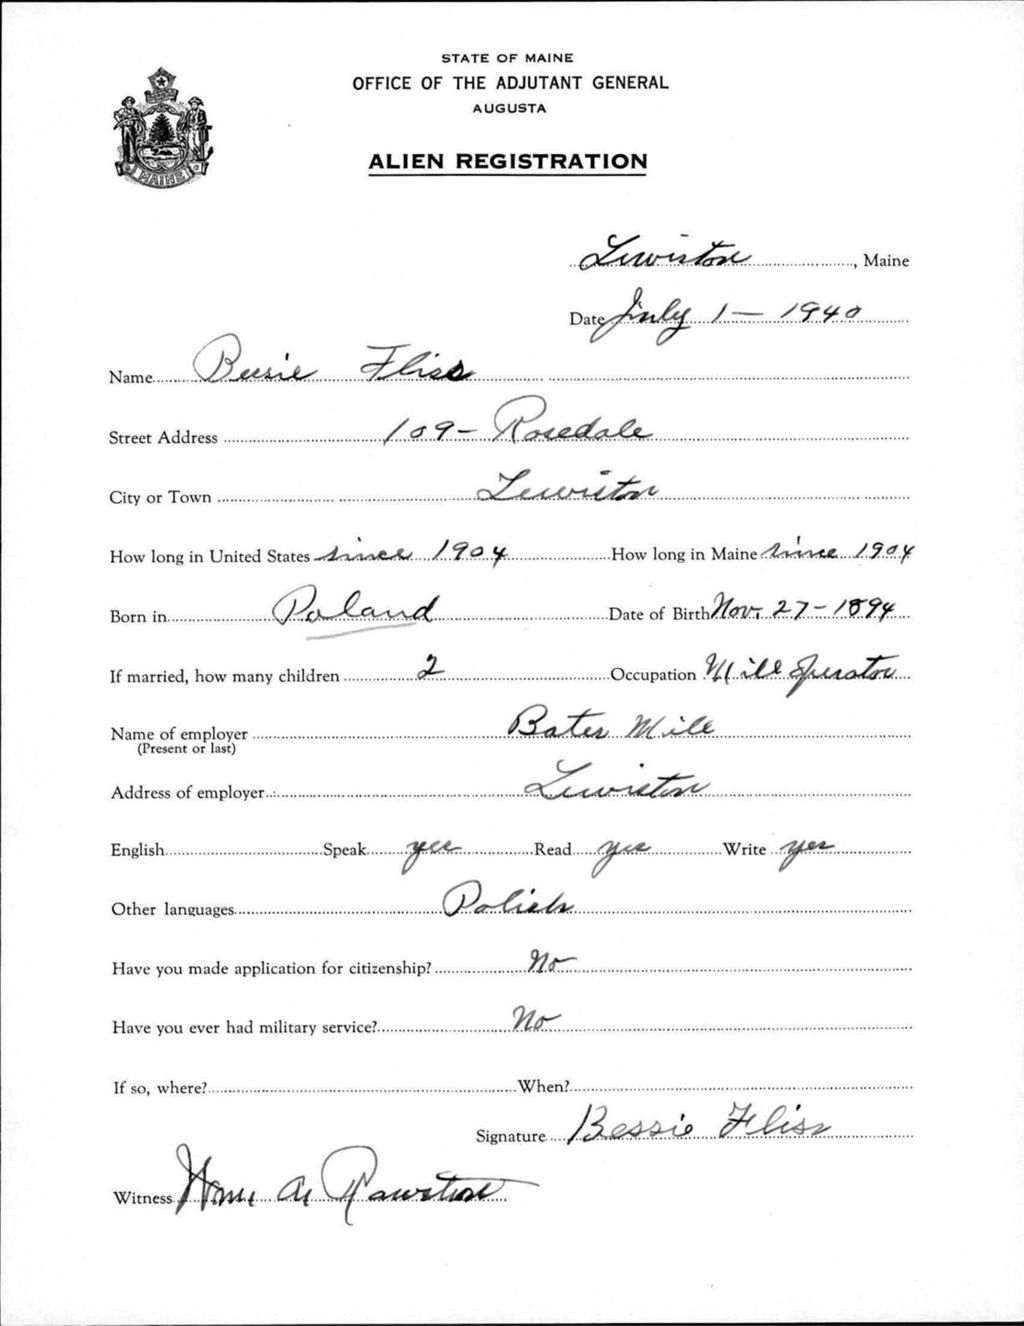 STATE OF MAINE
OFFICE OF THE ADJUTANT GENERAL
AUGUSTA
ALIEN REGISTRATION
MAINE
Lewiston, Maine
Date July 1 — 1940
Name Bessie Fliss
Street Address 109 - Rosedale
City or Town Lewiston
How long in United States since 1904 How long in Maine since 1904
Born in Poland Date of Birth Nov. 27 - 1894
If married, how many children 2 Occupation Mill operator
Name of employer Bates Mill
(Present or last)
Address of employer Lewiston
English Speak yes Read yes Write yes
Other languages Polish
Have you made application for citizenship? No
Have you ever had military service? No
If so, where? When?
Signature Bessie Fliss
Witness A.